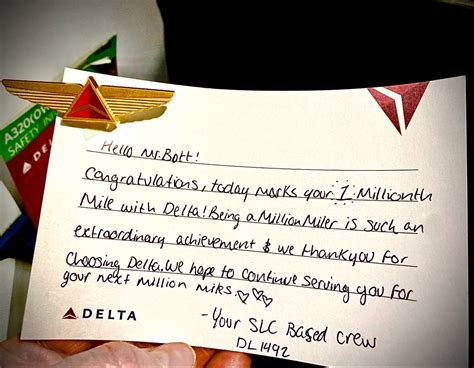 A320(
SAFETY IN
DE
Hello Mr. Bott!
Congratulations, today marks your 1 Millionth
Mile with Delta! Being a Million Miler is such an
extraordinary achievement & we thank you for
Choosing Delta. We hope to continue serving you for
your next million miles.
- Your SLC Based Crew
DL1492
DELTA